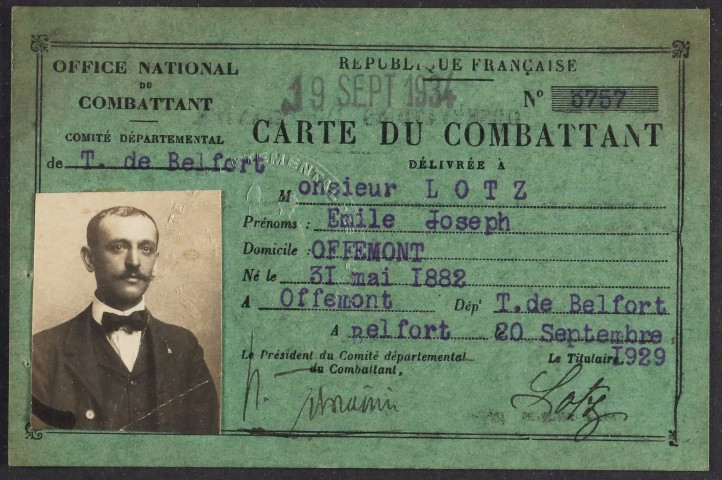 OFFICE NATIONAL
DU
COMBATTANT
COMITÉ DÉPARTEMENTAL
de T. de Belfort
RÉPUBLIQUE FRANÇAISE
19 SEPT 1934
Nº 5757
CARTE DU COMBATTANT
DÉLIVRÉE À
Monsieur LOTZ
Prénoms : Emile Joseph
Domicile : OFFEMONT
Né le 31 mai 1882
A Offemont Dép' T. de Belfort
A Belfort 20 Septembre
1929
Le Président du Comité départemental
du Combattant,
Le Titulaire
Lotz